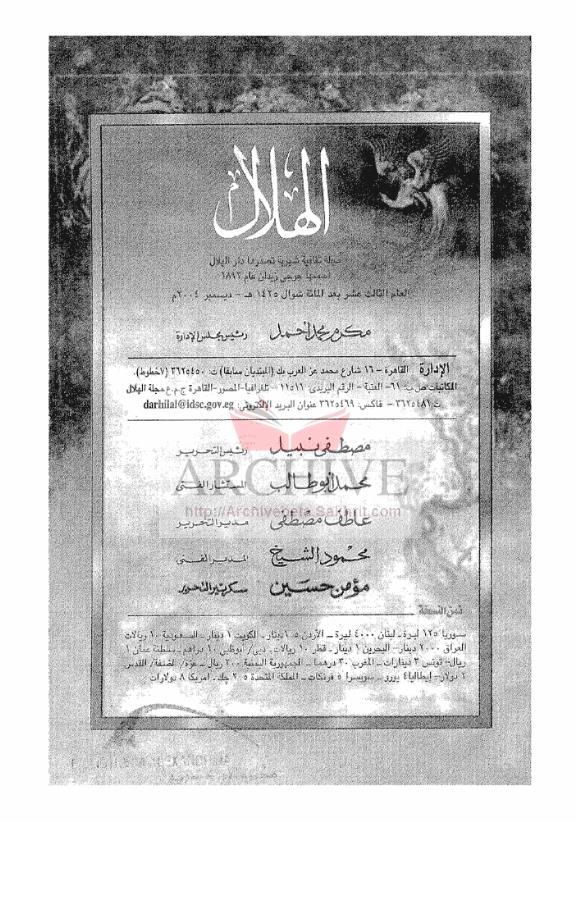 الهلال
مجلة ثقافية شهرية تصدرها دار الهلال
أسسها جرجي زيدان عام ١٨٩٢
العام الثالث عشر بعد المائة شوال ١٤٢٥ هـ - ديسمبر ٢٠٠٤م
مكرم محمد أحمد رئيس مجلس الإدارة
الإدارة القاهرة - ١٦ شارع محمد عز العرب بك (المبتديان سابقا) ت: ٣٦٢٥٤٥٠ (٧خطوط).
المكاتبات: ص.ب: ٦١- العتبة - الرقم البريدى: ١١٥١١ - تلغرافيا-المصور-القاهرة ج.م.ع مجلة الهلال
ت: ٣٦٢٥٤٨١ - فاكس: ٣٦٢٥٤٦٩ عنوان البريد الإلكترونى: darhilal@idsc.gov.eg
مصطفى نبيل رئيس التحرير
ARCHIVE
محمد أبو طالب المستشار الفنى
http://Archivebeta.Sakhrit.com
عاطف مصطفى مدير التحرير
محمود الشيخ المدير الفنى
مؤمن حسين سكرتير التحرير
ثمن النسخة
سوريا ١٢٥ ليرة - لبنان ٤٠٠٠ ليرة - الأردن ١٫٥ دينار - الكويت ١ دينار - السعودية ١٠ ريالات
العراق ٢٠٠٠ دينار - البحرين ١ دينار - قطر ١٠ ريالات - دبى/ أبوظبى ١٠ دراهم - سلطنة عمان ١
ريال - تونس ٣ دينارات - المغرب ٣٠ درهما - الجمهورية اليمنية ٢٠٠ ريال - غزة/ الضفة/ القدس
١ دولار - إيطاليا ٤ يورو - سويسرا ٥ فرنكات - المملكة المتحدة ٢٫٥ جك - أمريكا ٨ دولارات